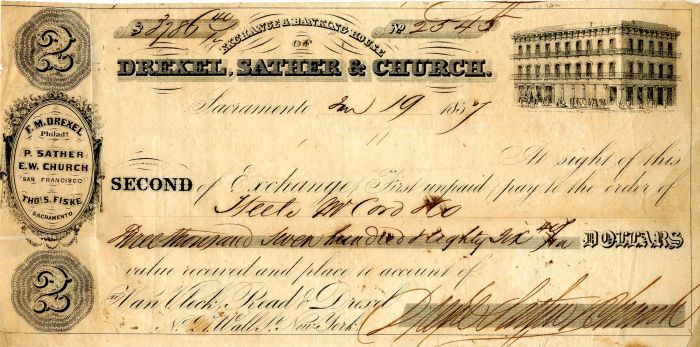 $ 3786 40/100 No 2545
EXCHANGE & BANKING HOUSE
OF
DREXEL, SATHER & CHURCH.
Sacramento Jan 19 1857
2
F. M. DREXEL
Philada.
P. SATHER
E. W. CHURCH
SAN FRANCISCO
THOS. S. FISKE
SACRAMENTO
2
At sight of this
SECOND of Exchange, First unpaid, pay to the order of
Steele McCord & Co
Three thousand seven hundred & Eighty Six 40/100 DOLLARS
value received and place to account of
To Van Vleck, Read & Drexel
No. Wall St. New York.
Drexel Sather & Church